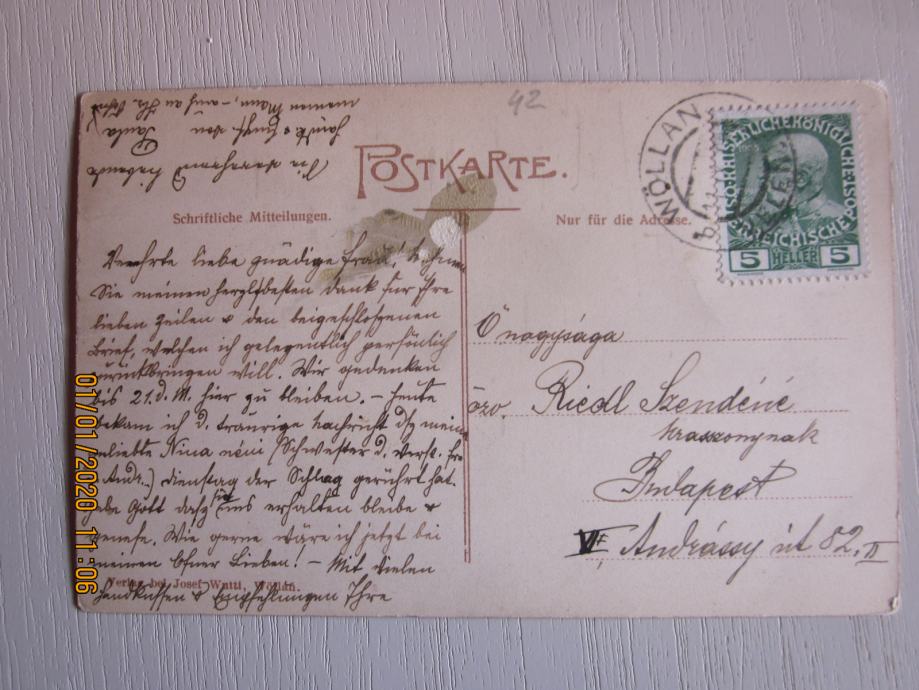 42
POSTKARTE.
Schriftliche Mitteilungen.
Nur für die Adresse.
WÖLLAN
VELENJ
KAISERLICHEKÖNIGLICHE
ÖSTERREICHISCHE POST
5 HELLER 5
Verehrte liebe gnädige Frau!
Sie meinen herzlichsten Dank für Ihre
lieben Zeilen & den beigeschlossenen
Brief, welchen ich gelegentlich persönlich
zurückbringen will. Wir gedenken
bis 21. d. M. hier zu bleiben. – Heute
bekam ich d. traurige Nachricht dß meine
geliebte Nina néni (Schwester d. verst.
Andr.) Dienstag der Schlag gerührt hat.
Gott daß sie uns erhalten bleibe &
genese. Wie gerne wäre ich jetzt bei
meinen Ofner Lieben! – Mit vielen
Handküssen & Empfehlungen Ihre
Sie verehrende
Paula
meinen Mann, – auch an
Verlag bei Josef Wutti, Wöllan.
Ő nagysága
özv. Riedl Szendéné
úrasszonynak
Budapest
VI. Andrássy út 82. II
01/01/2020 11:06